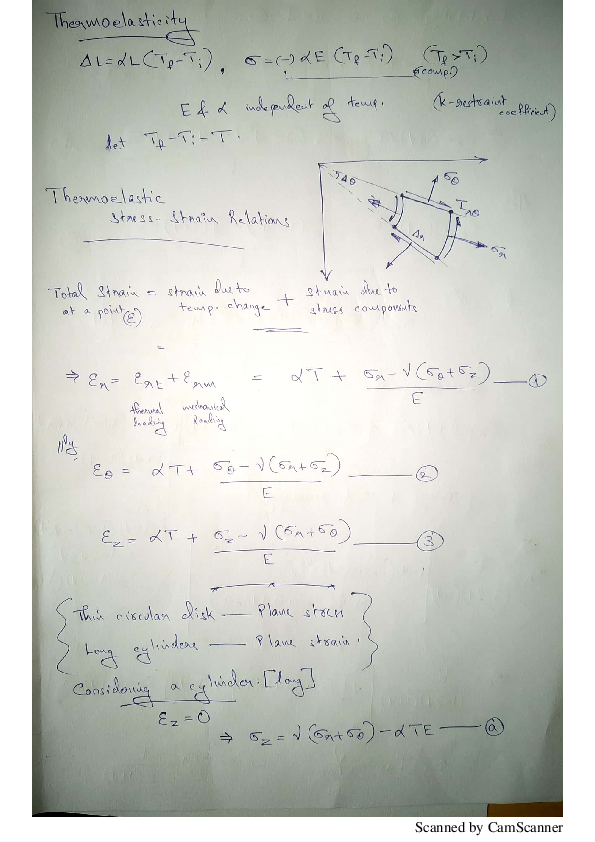 Thermoelasticity
ΔL = αL(Tf - Ti), σ = (-) αE (Tf - Ti) (Tf > Ti)
(comp.)
E & α independent of temp. (k-restraint
coefficient)
let Tf - Ti - T.
Δθ
σθ
Trθ
Δr
σr
Thermoelastic
Stress-Strain Relations
Total Strain = strain due to + strain due to
at a point (ε) temp. change stress components
=
⇒ εr = εrt + εrm = αT + σr - ν(σθ + σz) / E — ①
thermal mechanical
loading loading
lly
εθ = αT + σθ - ν(σr + σz) / E — ②
εz = αT + σz - ν(σr + σθ) / E — ③
Thin circular disk — Plane stress
Long cylinders — Plane strain.
Considering a cylinder. [long]
εz = 0
⇒ σz = ν(σr + σθ) - αTE — ⓐ
Scanned by CamScanner